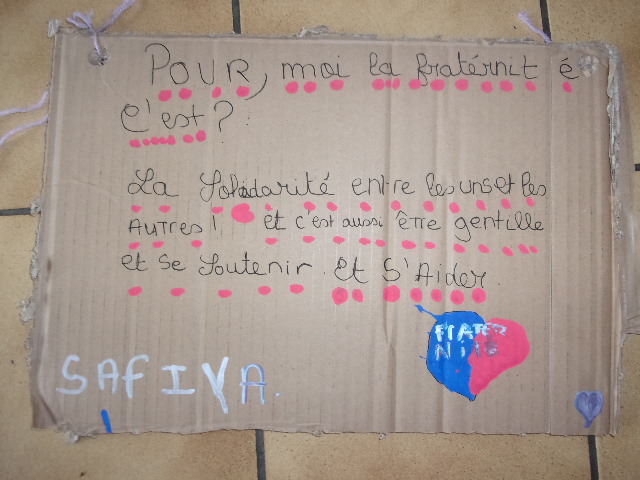 POUR, moi la fratérnité
C'est ?
La Solidarité entre les uns et les
AUTRES ! et c'est aussi être gentille
et se soutenir. Et S'Aider.
FRATER
NITÉ
SAFIYA.